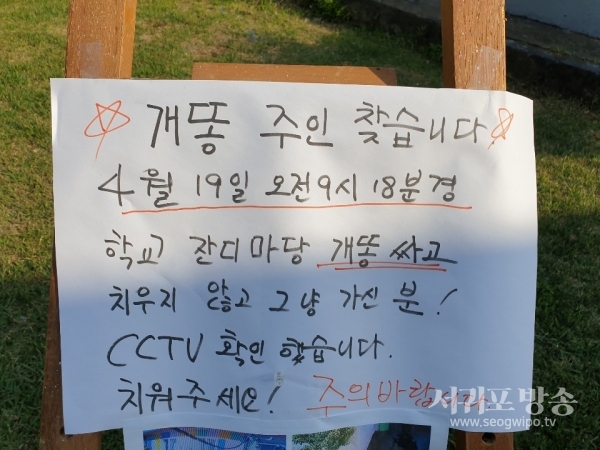 ☆ 개똥 주인 찾습니다 ☆
4월 19일 오전 9시 18분경
학교 잔디마당 개똥 싸고
치우지 않고 그냥 가신 분!
CCTV 확인 했습니다.
치워주세요! 주의바랍니다
서귀포방송
www.seogwipo.tv